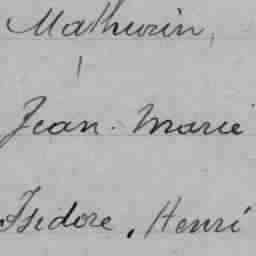 Mathurin,
Jean. Marie
Isidore. Henri